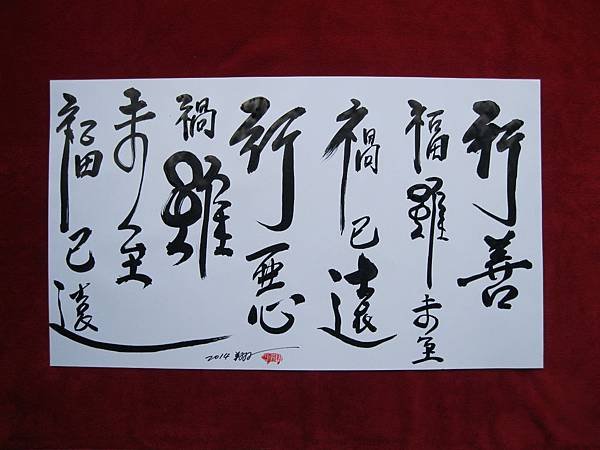 行善
福雖未至
禍已遠
行惡
禍雖
未至
福已遠
2014